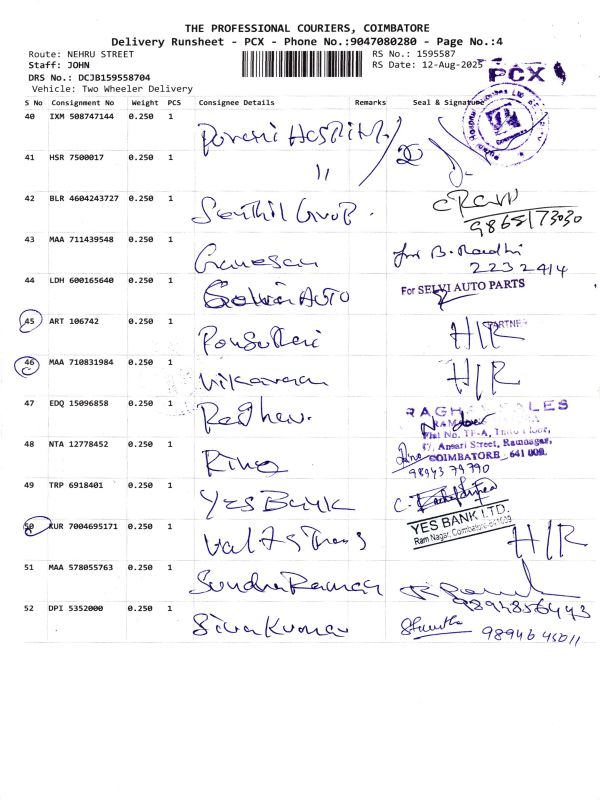 THE PROFESSIONAL COURIERS, COIMBATORE
Delivery Runsheet - PCX - Phone No.:9047080280 - Page No.:4
Route: NEHRU STREET RS No.: 1595587
Staff: JOHN RS Date: 12-Aug-2025
DRS No.: DCJB159558704
Vehicle: Two Wheeler Delivery
PCX
S No Consignment No Weight PCS Consignee Details Remarks Seal & Signature
40 IXM 508747144 0.250 1 Hospital
41 HSR 7500017 0.250 1 11
42 BLR 4604243727 0.250 1 Senthil Group.
9865173030
43 MAA 711439548 0.250 1 Ganesan
2232414
44 LDH 600165640 0.250 1 Auto For SELVI AUTO PARTS
PARTNER
45 ART 106742 0.250 1 H/R
46 MAA 710831984 0.250 1 H/R
47 EDQ 15096858 0.250 1 Raghav.
RAGHAV SALES
47, Ansari Street, Ramnagar,
COIMBATORE 641 009.
48 NTA 12778452 0.250 1 King 98943 79790
49 TRP 6918401 0.250 1 Yes Bank C.
YES BANK LTD.
Ram Nagar, Coimbatore-641009
50 KUR 7004695171 0.250 1 Trans H/R
51 MAA 578055763 0.250 1 Sundra Raman
9894856443
52 DPI 5352000 0.250 1 Siva Kumar 98946 45011